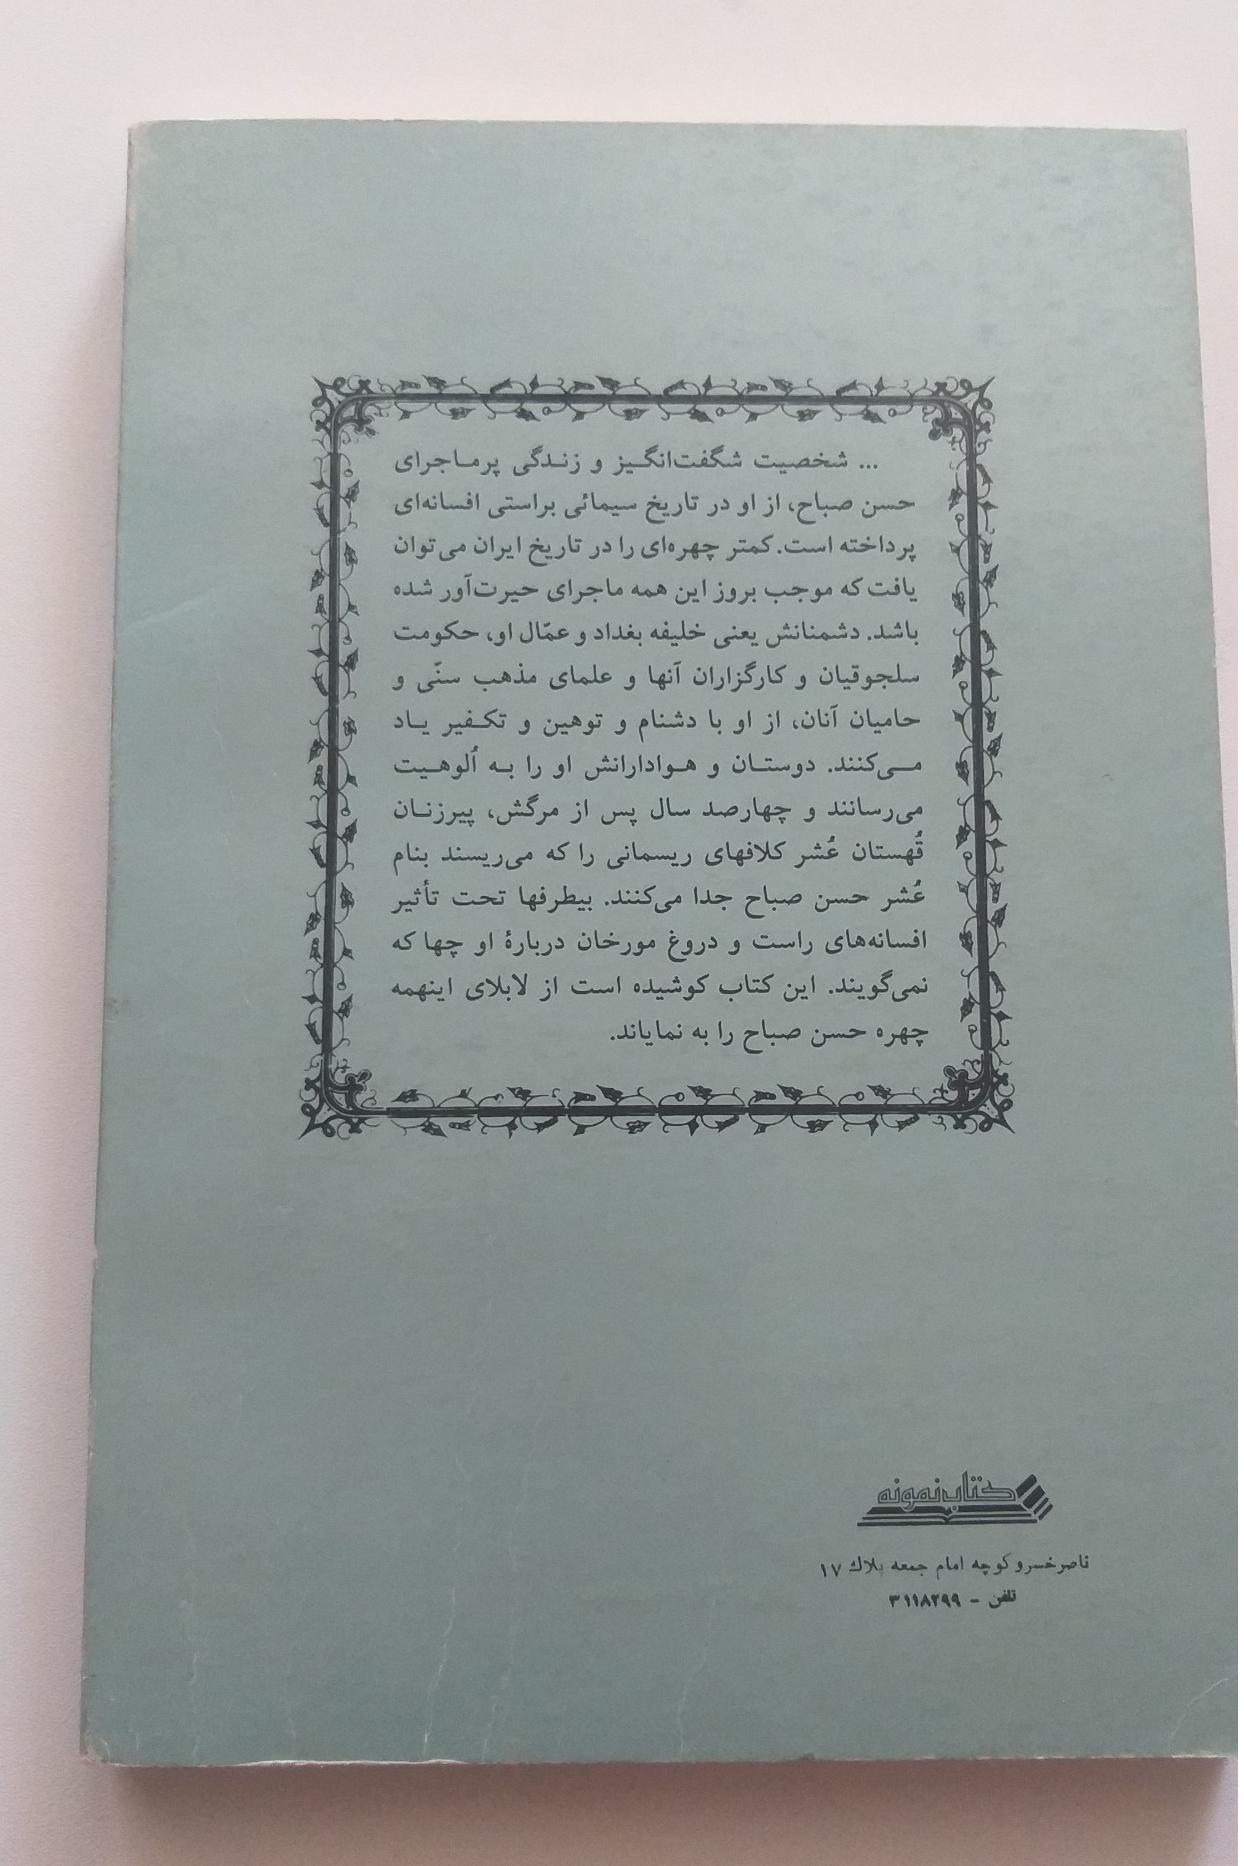 ... شخصیت شگفت‌انگیز و زندگی پرماجرای
حسن صباح، از او در تاریخ سیمائی براستی افسانه‌ای
پرداخته است. کمتر چهره‌ای را در تاریخ ایران می‌توان
یافت که موجب بروز این همه ماجرای حیرت‌آور شده
باشد. دشمنانش یعنی خلیفه بغداد و عمّال او، حکومت
سلجوقیان و کارگزاران آنها و علمای مذهب سنّی و
حامیان آنان، از او با دشنام و توهین و تکفیر یاد
می‌کنند. دوستان و هوادارانش او را به اُلوهیت
می‌رسانند و چهارصد سال پس از مرگش، پیرزنان
قُهستان عُشر کلافهای ریسمانی را که می‌ریسند بنام
عُشر حسن صباح جدا می‌کنند. بیطرفها تحت تأثیر
افسانه‌های راست و دروغ مورخان دربارهٔ او چها که
نمی‌گویند. این کتاب کوشیده است از لابلای اینهمه
چهره حسن صباح را به نمایاند.
کتاب نمونه
ناصرخسرو کوچه امام جمعه پلاک ۱۷
تلفن - ۳۱۱۸۲۹۹